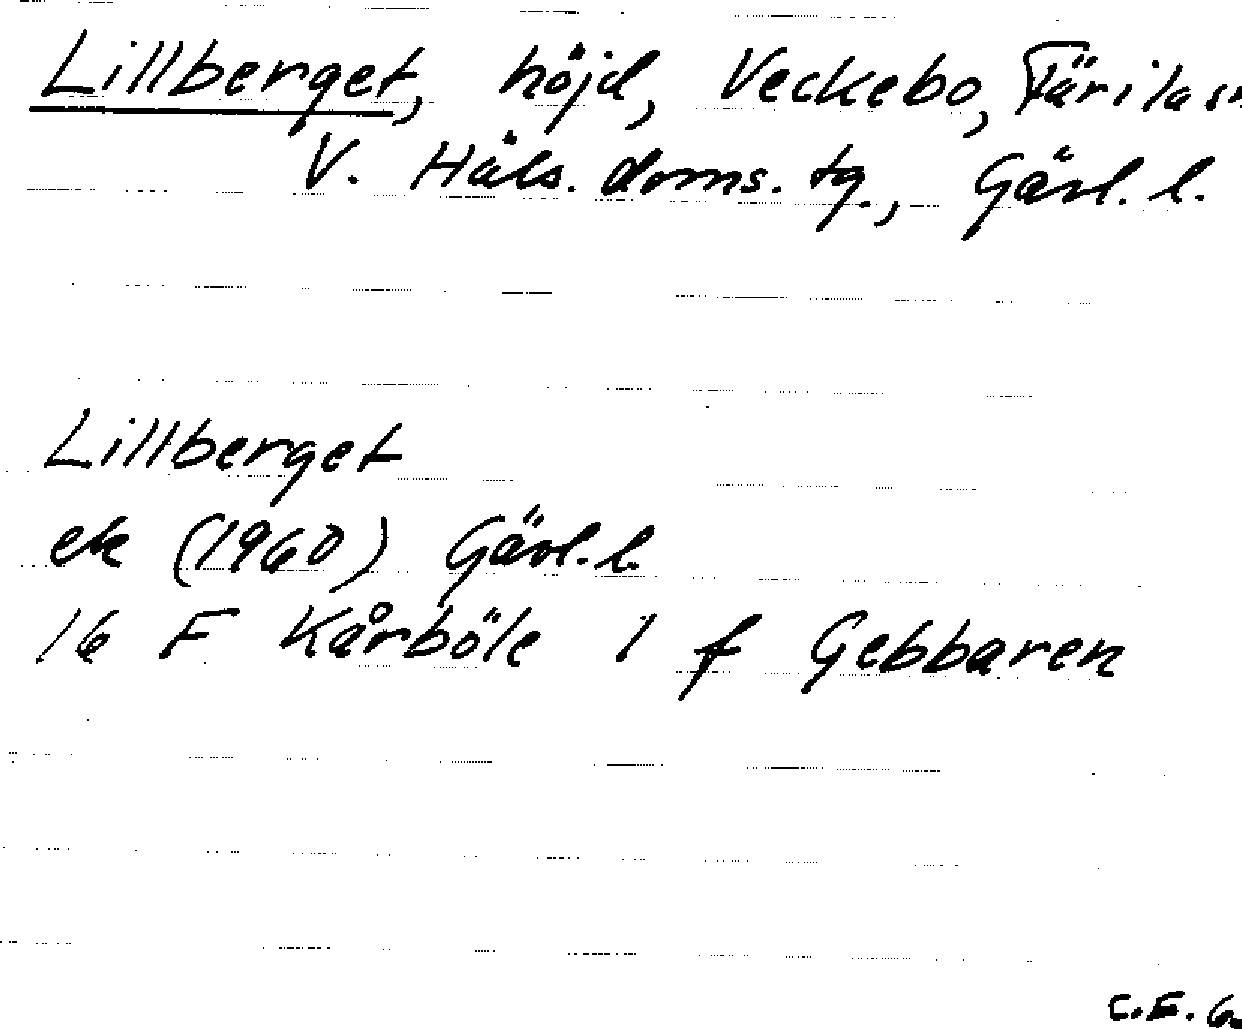 Lillberget, höjd, Veckebo, Färila sn
V. Häls. doms. tg., Gävl. l.
Lillberget
ek (1960) Gävl. l.
16 F Kårböle 1 f Gebbaren
C.E.